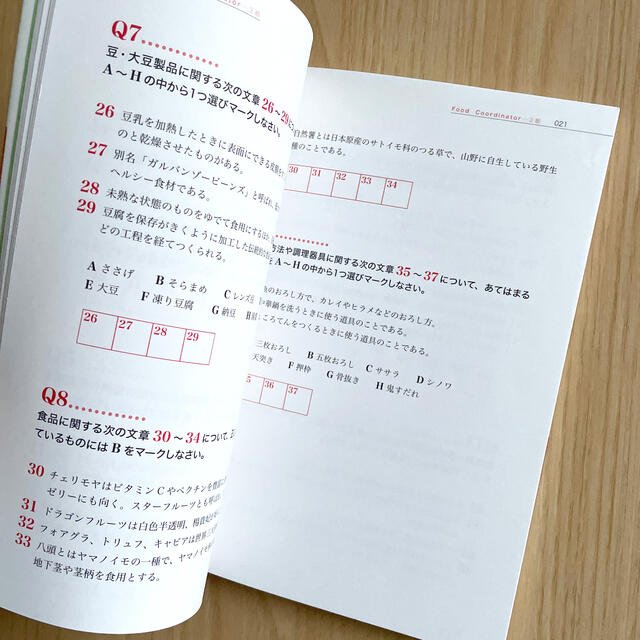 Coordinator 2級
Q7
豆・大豆製品に関する次の文章 26〜29に
A〜Hの中から1つ選びマークしなさい。
26 豆乳を加熱したときに表面にできる
のと乾燥させたものがある。
27 別名「ガルバンゾービーンズ」と呼ばれ、
ヘルシー食材である。
28 未熟な状態のものをゆでて食用にする
29 豆腐を保存がきくように加工した伝統的な
どの工程を経てつくられる。
A ささげ B そらまめ C レンズ豆
E 大豆 F 凍り豆腐 G 納豆 H
26 27 28 29
Q8
食品に関する次の文章 30〜34について、
ているものには B をマークしなさい。
30 チェリモヤはビタミンCやペクチンを豊富
ゼリーにも向く。スターフルーツとも呼ば
31 ドラゴンフルーツは白色半透明、楊貴妃が
32 フォアグラ、トリュフ、キャビアは世界三
33 八頭とはヤマノイモの一種で、ヤマノイモ
地下茎や茎柄を食用とする。
Food Coordinator 2級 021
自然薯とは日本原産のサトイモ科のつる草で、山野に自生している野生
種のことである。
30 31 32 33 34
方法や調理器具に関する次の文章 35〜37 について、あてはまる
A〜Hの中から1つ選びマークしなさい。
魚のおろし方で、カレイやヒラメなどのおろし方。
中華鍋を洗うときに使う道具のことである。
ころてんをつくるときに使う道具のことである。
三枚おろし B 五枚おろし C ササラ D シノワ
天突き F 押枠 G 骨抜き H 鬼すだれ
5 36 37